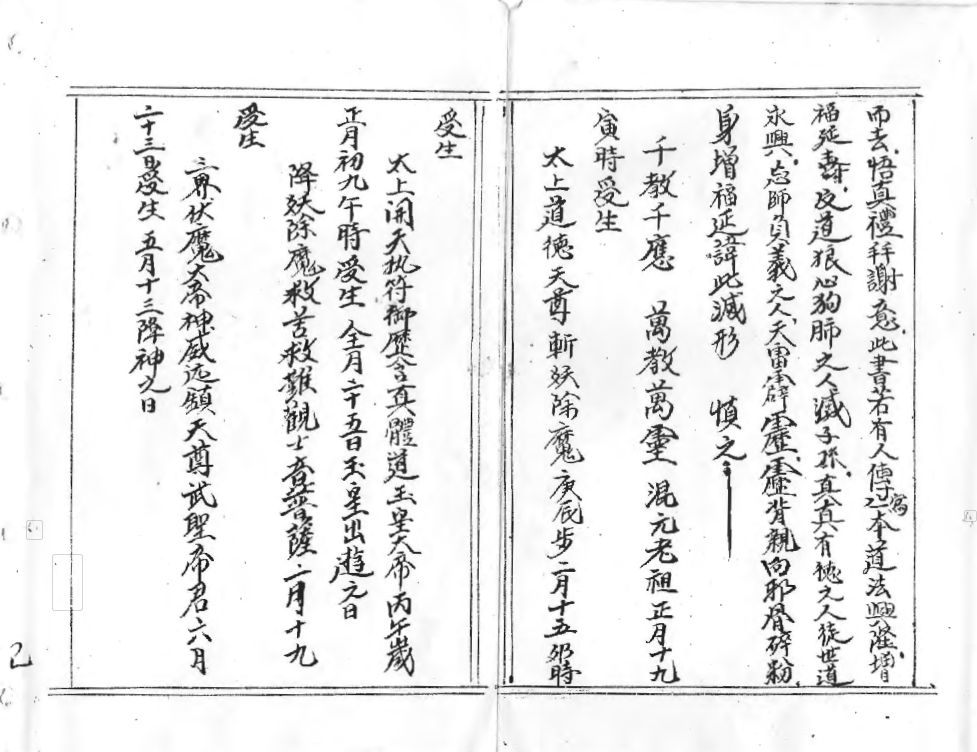 而去悟真禮拜謝意此書若有人傳寫之本道法興隆增
福延壽反道狠心狗肺之人滅子孫真真有德之人徒世道
永興忘師負義之人天雷霹靂背親向耶骨碎粉
身增福延諱此滅形 慎之
千教千應 萬教萬靈 混元老祖正月十九
寅時受生
太上道德天尊斬妖除魔庚辰步二月十五卯時
受生
太上開天执符御歷含真體道玉皇大帝丙午歲
正月初九午時受生 仝月二十五日玉皇出遊元日
降妖除魔救苦救難觀士音菩薩二月十九
受生
三界伏魔大帝神威远鎮天尊武聖帝君六月
二十三日受生 五月十三降神九日